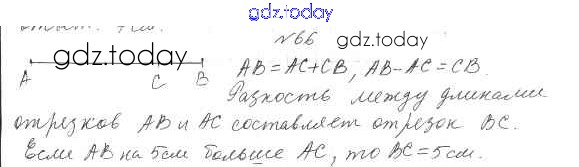 gdz.today
№66 gdz.today
gdz.today
A C B
AB = AC+CB, AB-AC=CB.
Разность между длинами
отрезков AB и AC составляет отрезок BC.
Если AB на 5см больше AC, то BC=5см.